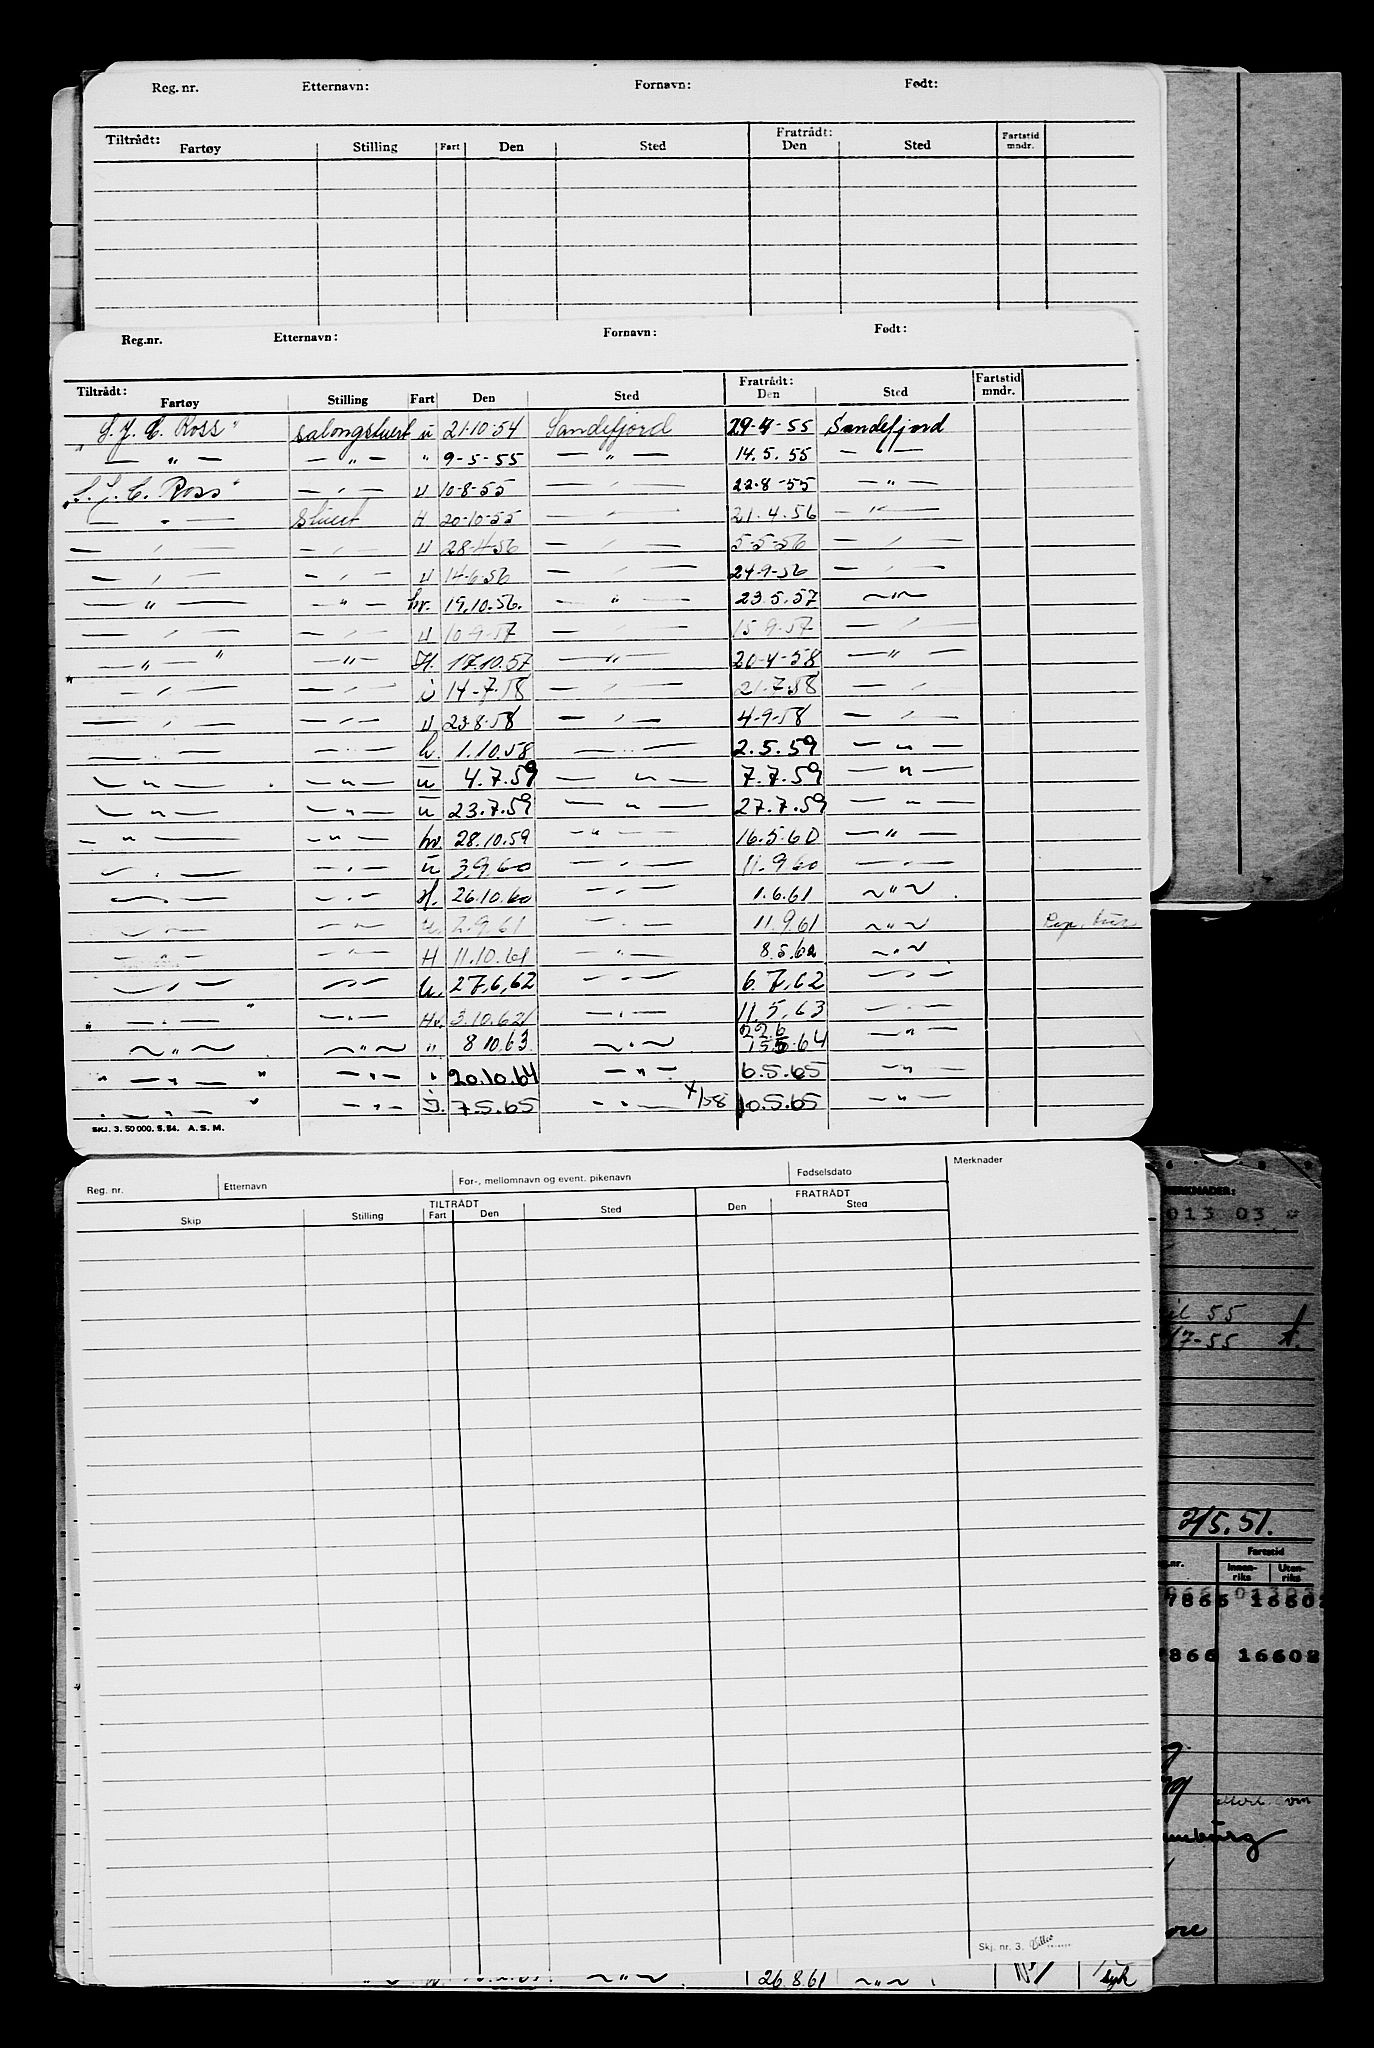 Reg. nr. Etternavn: Fornavn: Født:
Tiltrådt: Fratrådt: Fartstid
Fartøy Stilling Fart Den Sted Den Sted mndr.
Reg.nr. Etternavn: Fornavn: Født:
Tiltrådt: Fratrådt: Fartstid
Fartøy Stilling Fart Den Sted Den Sted mndr.
"S. J. C. Ross" salongstuert u 21-10-54 Sandefjord 29-4-55 Sandefjord
— " — — " — " 9-5-55 — " — 14.5.55 — " —
"S. J. C. Ross" — " — U 10-8-55 — " — 22-8-55 — " —
— " — Stuert H 20-10-55 — " — 21.4.56 — " —
— " — — " — U 28-4-56 — " — 5-5-56 — " —
— " — — " — U 14-6-56 — " — 24-9-56 — " —
— " — — " — hv. 19.10.56. — " — 23.5.57 — " —
— " — — " — U 10-9-57 — " — 15-9-57 — " —
— " — " — " — H. 17.10.57 — " — 20-4-58 — " —
" — " — — " — U 14-7-58 — " — 21-7-58 — " —
— " — — " — U 23-8-58 — " — 4-9-58 — " —
— — — " — h. 1.10.58 — " — 2.5.59 — " —
— " — — " — u 4.7.59 — " — 7.7.59 — " —
— " — — " — u 23.7.59 — " — 27.7.59 — " —
— " — — " — hv. 28.10.59 — " — 16.5.60 — " —
— " — — " — u 3.9.60 — " — 11.9.60 — " —
— " — — " — H. 26.10.60 — " — 1.6.61 — " —
— " — — " — u. 2.9.61 — " — 11.9.61 — " — Rep.
— " — — " — H 11.10.61 — " — 8.5.62 — " —
— " — — " — u. 27,6,62 — " — 6.7,62 — " —
" — " — " — " — Hv. 3.10.62 — " — 11.5.63 — " —
— " — — " — " 8.10.63. — " — 22.6 15.5-64 — " —
" — " — " — " — " 20.10.64 — " — 6.5.65 — " —
" — " — " — " — 7.5.65 — " — x/58 10.5.65 — " —
SKJ. 3. 50 000. 5.54. A. S. M.
Reg. nr. Etternavn For-, mellomnavn og event. pikenavn Fødselsdato Merknader
TILTRÅDT FRATRÅDT
Skip Stilling Fart Den Sted Den Sted
MERKNADER:
013 03
55
17-55
2/5.51.
Fartstid
Innen-riks Uten-riks
866 16602
Skj. nr. 3.
— " — 26.8.61 — " — syk